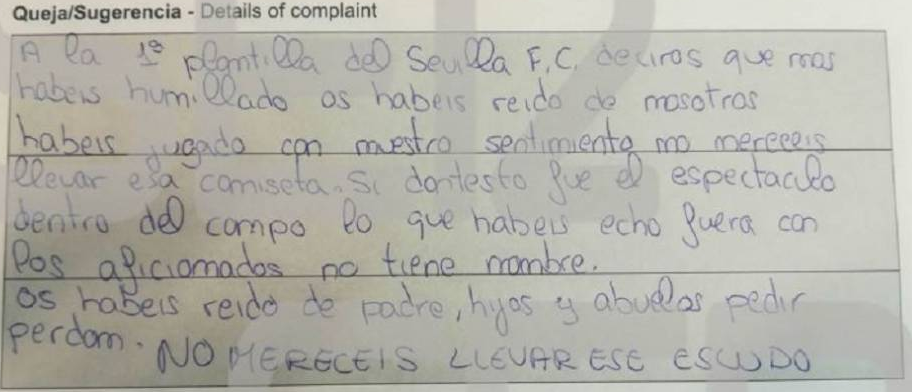 Queja/Sugerencia - Details of complaint
A la 1ª plantilla del Sevilla F.C. deciros que nos
habeis humillado os habeis reido de nosotros
habeis jugado con nuestro sentimiento no mereceis
llevar esa camiseta. Si dantesto fue el espectaculo
dentro del campo lo que habeis echo fuera con
los aficionados no tiene nombre.
os habeis reido de padre, hijos y abuelos pedir
perdon. NO MERECEIS LLEVAR ESE ESCUDO